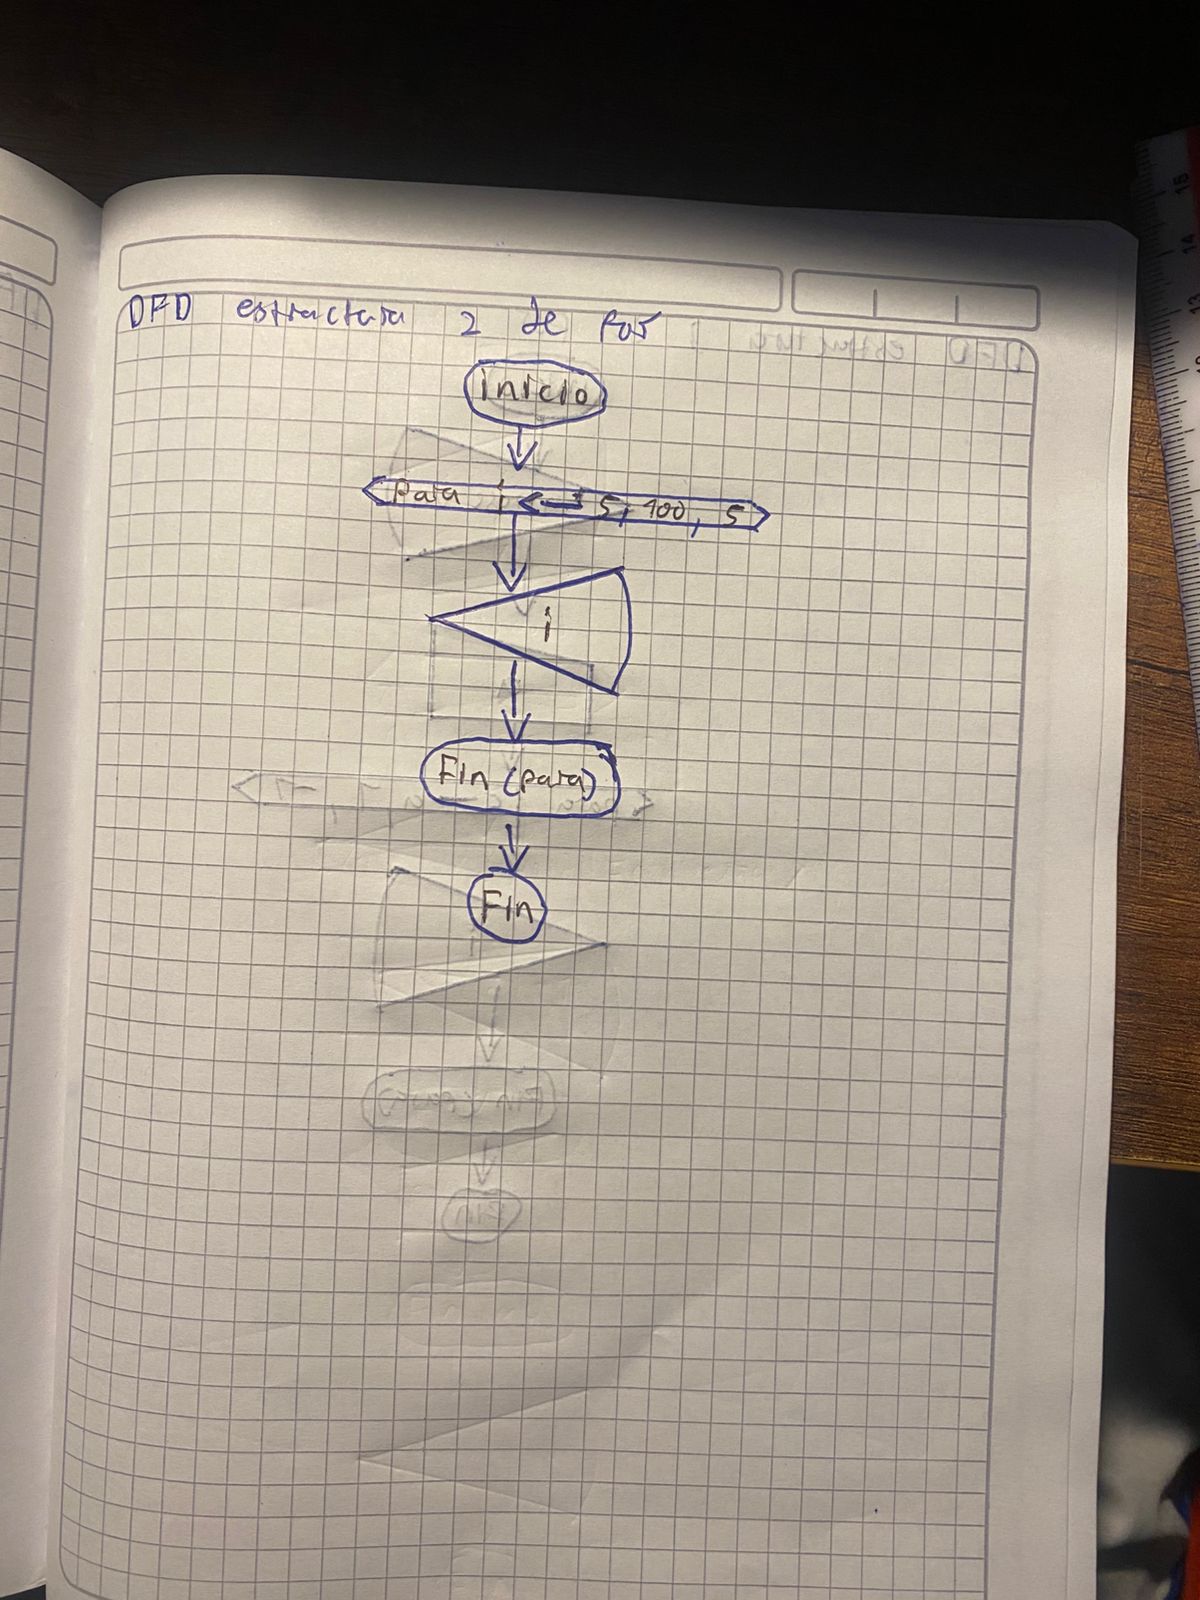 DFD estructura 2 de for
Inicio
Para i ← 5, 100, 5
i
Fin (para)
Fin